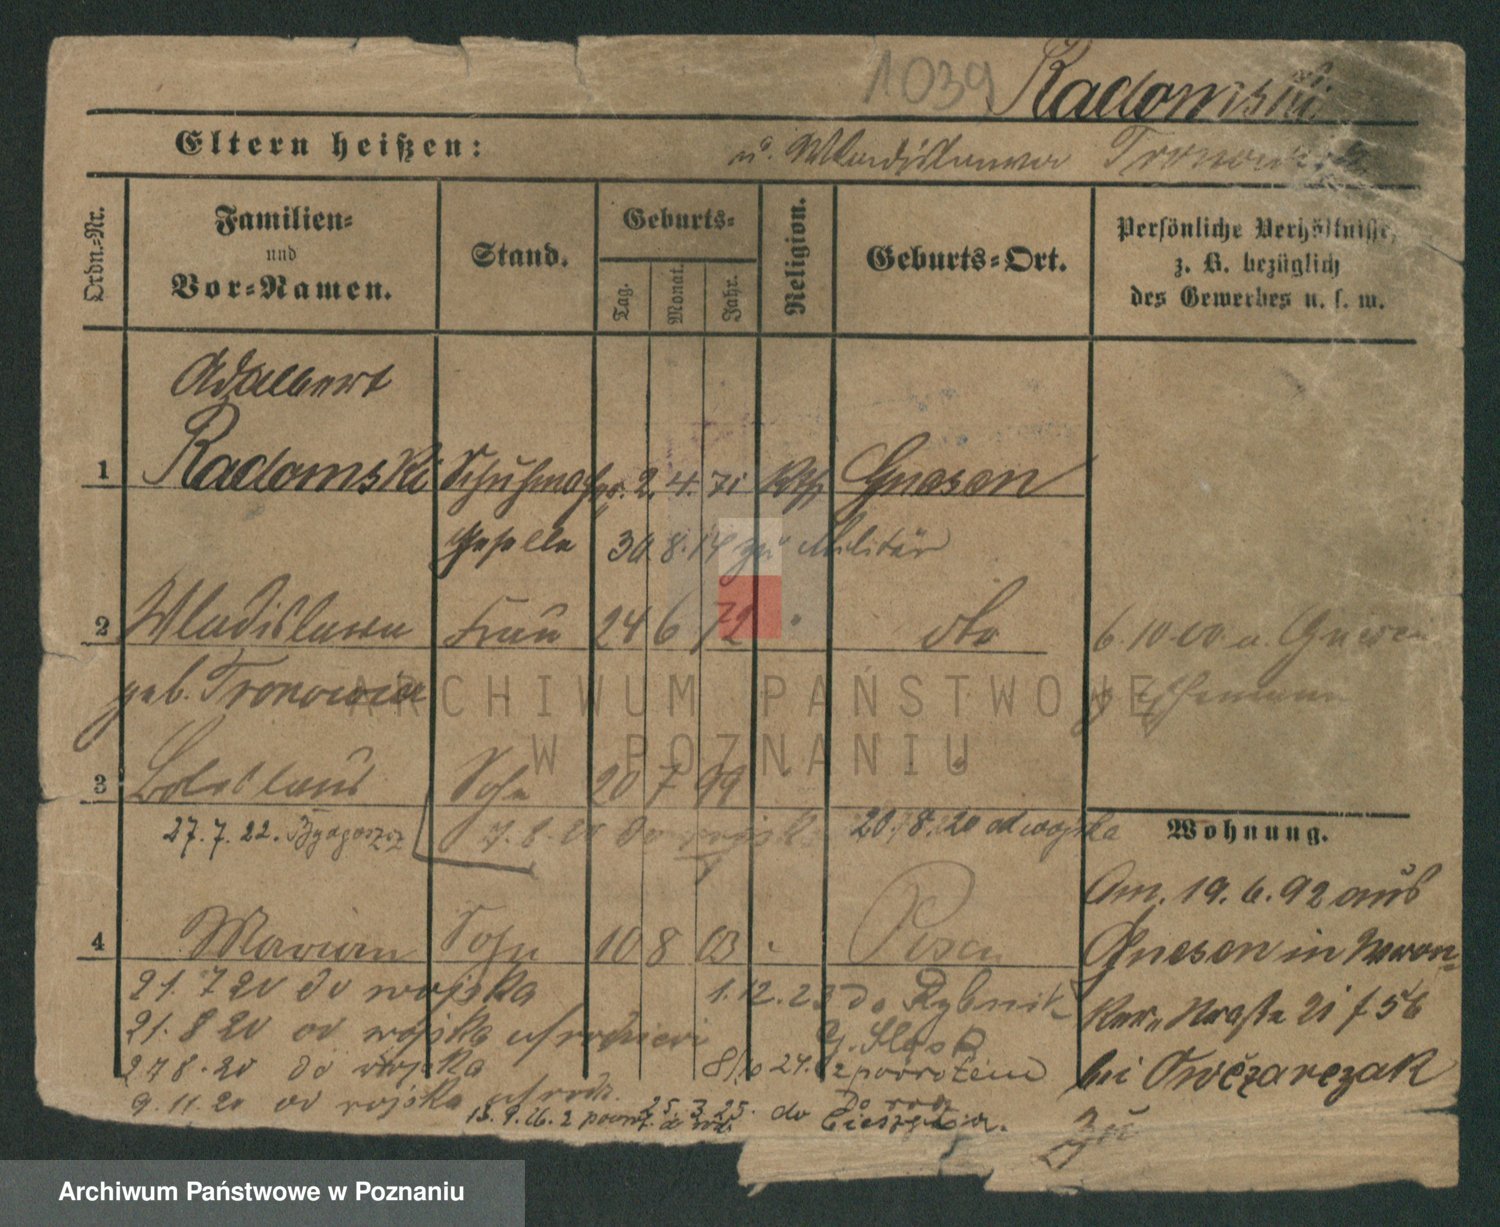 1039 Radomski
Eltern heißen: u. Wladislawa Tronowicz
Ordn.-Nr.
Familien-
und
Vor-Namen.
Stand.
Geburts-
Tag.
Monat.
Jahr.
Religion.
Geburts-Ort.
Persönliche Verhältnisse,
z. B. bezüglich
des Gewerbes u. s. w.
Adalbert
1 Radomski Schuhmachr. 2. 4. 71 kth Gnesen
Geselle 30. 8. 14 zu Militär
2 Wladislawa Frau 24 6 72 " dto 6. 10 00 a. Gnesen
geb. Tronowicz z. Ehemann
3 Boleslaus Sohn 20 7 99
27. 7. 22. Bydgoszcz 7. 8. 20 do wojska 20. 8. 20 od wojska
Wohnung.
Am 19. 6. 92 aus
4 Marian Sohn 10 8 03 Posen
Gnesen in Wron-
21. 7 20 do wojska 1. 12. 23 do Rybnik
ker Straße 21 f 56
21. 8 20 od wojska G. Śląsk
27 8. 20 do wojska 8/10 24. z powrotem
bei Owczarczak
9. 11. 20 od wojska 25. 3. 25. do Cieszyna.
15. 9. 26. z powr.
zu
ARCHIWUM PAŃSTWOWE
W POZNANIU
Archiwum Państwowe w Poznaniu